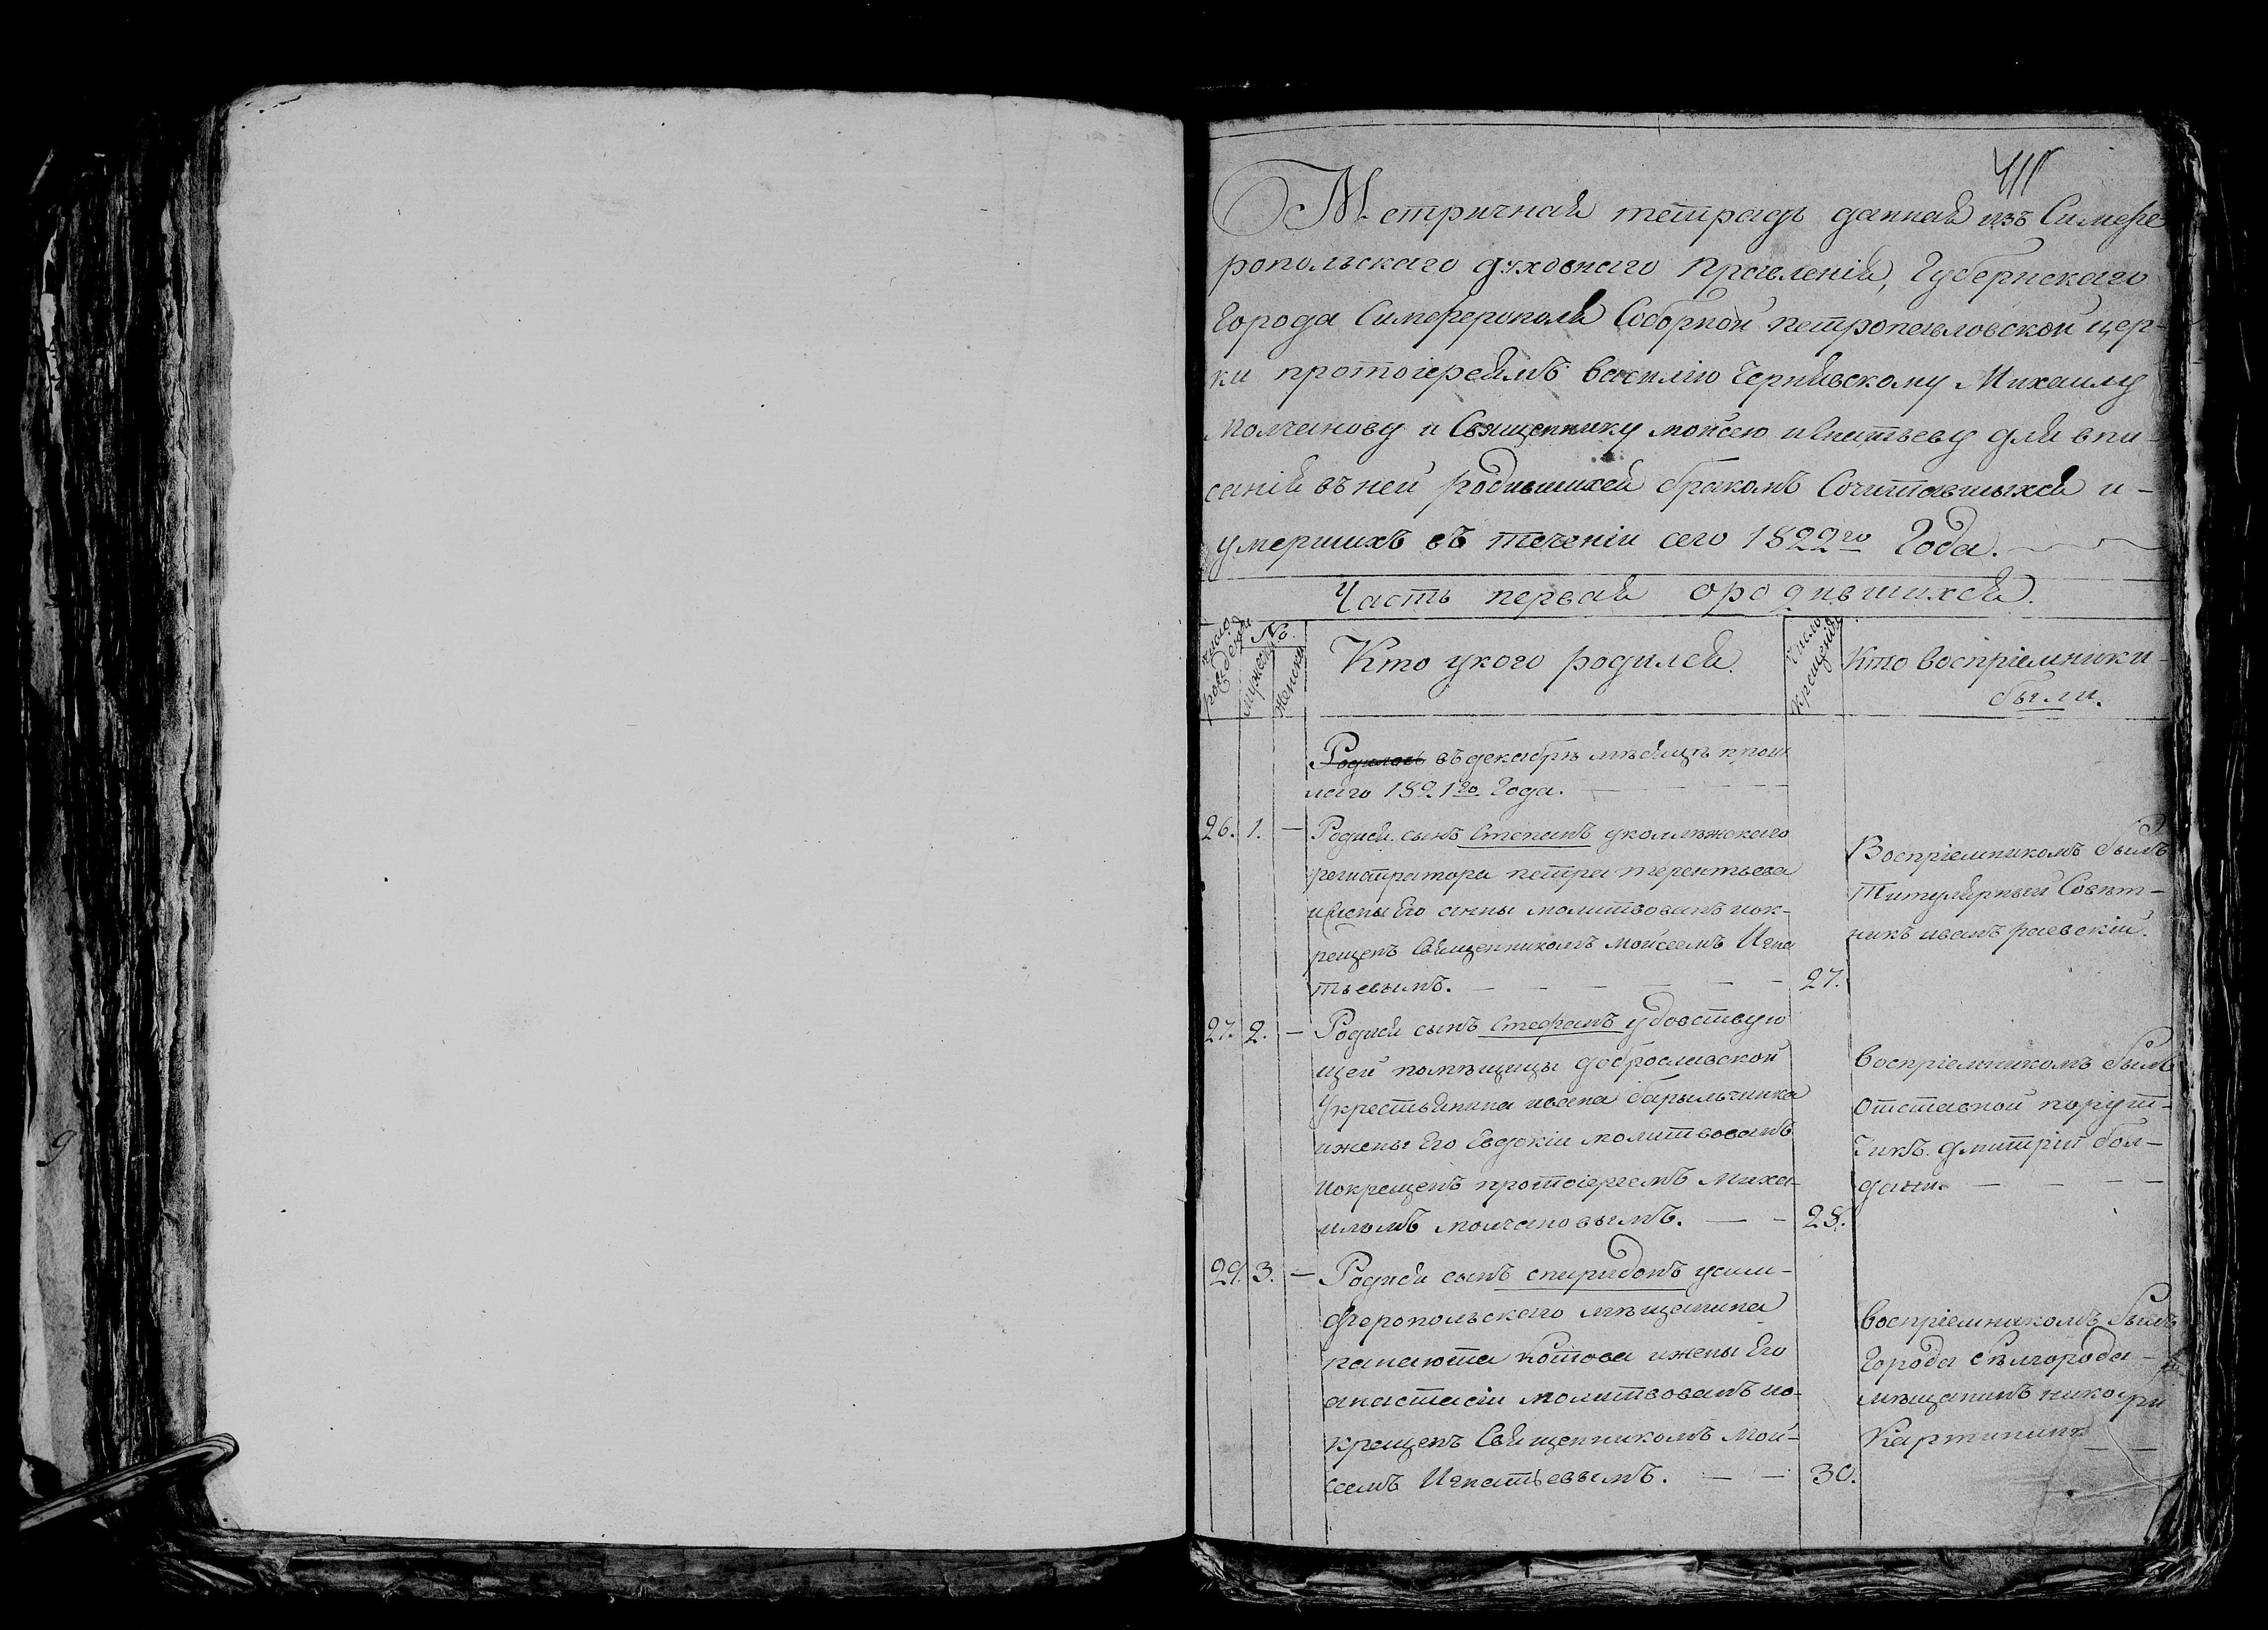 Метричная тетрадь данная изъ Симфе
ропольскаго духовнаго правленія, Губернскаго
Города Симферополя Соборной петропавловской цер-
кви протоіереямъ василію Чернявскому Михаилу
молчанову и Священнику мойсею игнатьеву для впи-
санія въ ней родившихся бракомъ Сочитавшыхся и-
умершихъ въ теченіи сего 1822го Года.
Часть первая о родившихся.
число рожденія
№.
мужеск
женска
Кто у кого родился.
Число крещенія
Кто воспріемники
были.
Родилось въ декабрѣ мѣсяцѣ прош
лаго 1821го Года.
26. 1. — Родися сынъ Степанъ у коллѣжскаго
регистратора петра терентьева
и жены Его анны молитвованъ и ок-
рещенъ Священникомъ мойсеемъ Игна
тьевымъ. — 27.
Воспріемникомъ былъ
Титулярный Совѣт-
никъ иванъ раевскій.
27. 2. — Родися сынъ Стефанъ у довствую
щей помѣщицы доброславской
У крестьянина ивана барыльчинка
и жены Его Евдокіи молитвованъ
и окрещенъ протоіереемъ Миха-
иломъ молчановымъ. — 28.
воспріемникомъ былъ
Отставной порут-
чикъ дмитрій бол-
дани. —
29. 3. — Родися сынъ спиридонъ у сим-
феропольскаго мѣщанина
панаюта Котова и жены Его
анастасіи молитвованъ и о-
крещенъ Священникомъ мой-
сеемъ Игнатьевымъ. — 30.
воспріемникомъ былъ
Города бѣлгорода
мѣщанинъ
Картининъ
9